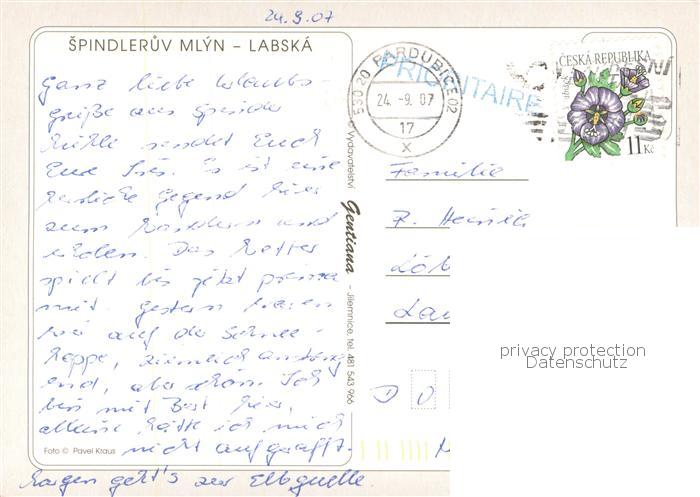 24.9.07
ŠPINDLERŮV MLÝN – LABSKÁ
Ganz liebe Urlaubs-
grüße aus Spindel
Mühle sendet Euch
Eure Inés. Es ist eine
herrliche Gegend hier
zum Wandern und
radeln. Das Wetter
spielt bis jetzt prima
mit. Gestern waren
wir auf der Schnee-
koppe, ziemlich anstreng
end, aber schön. Ich
bin mit hier,
alleine hätte ich mich
nicht aufgerafft.
Morgen geht's zur Elbquelle.
Foto © Pavel Kraus
Vydavatelství Gentiana – Jilemnice, tel. 481 543 966
PRIORITAIRE
530 20 PARDUBICE 02
24. -9. 07
17
X
ČESKÁ REPUBLIKA
11 Kč
Familie
Heinrich
D 0
privacy protection
Datenschutz